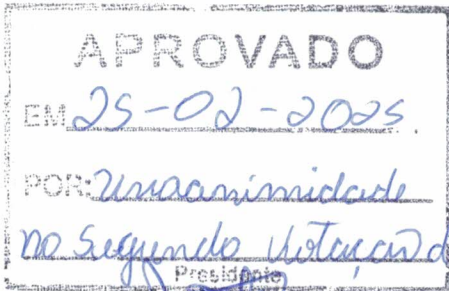 APROVADO
EM 25-02-2025
POR: Unaanimidade
no Segundo Votação
Presidente